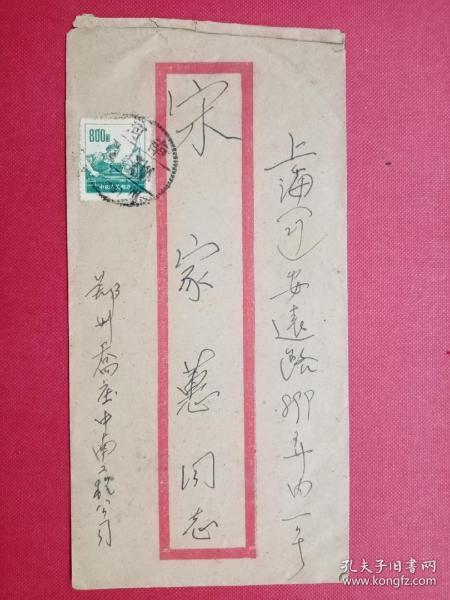 上海 安遠路 弄四一号
宋家蕙同志
鄭州喬庄中南工程公司
800圓
中国人民郵政
孔夫子旧书网
www.kongfz.com